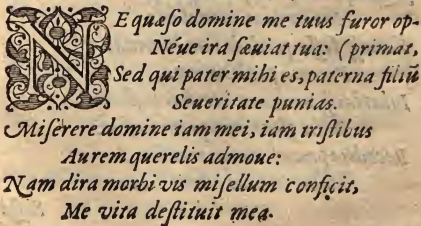 NE quæso domine me tuus furor op-
Néue ira sæuiat tua: (primat,
Sed qui pater mihi es, paterna filiũ
Seueritate punias.
Miserere domine iam mei, iam tristibus
Aurem querelis admoue:
Nam dira morbi vis misellum conficit,
Me vita destituit mea.